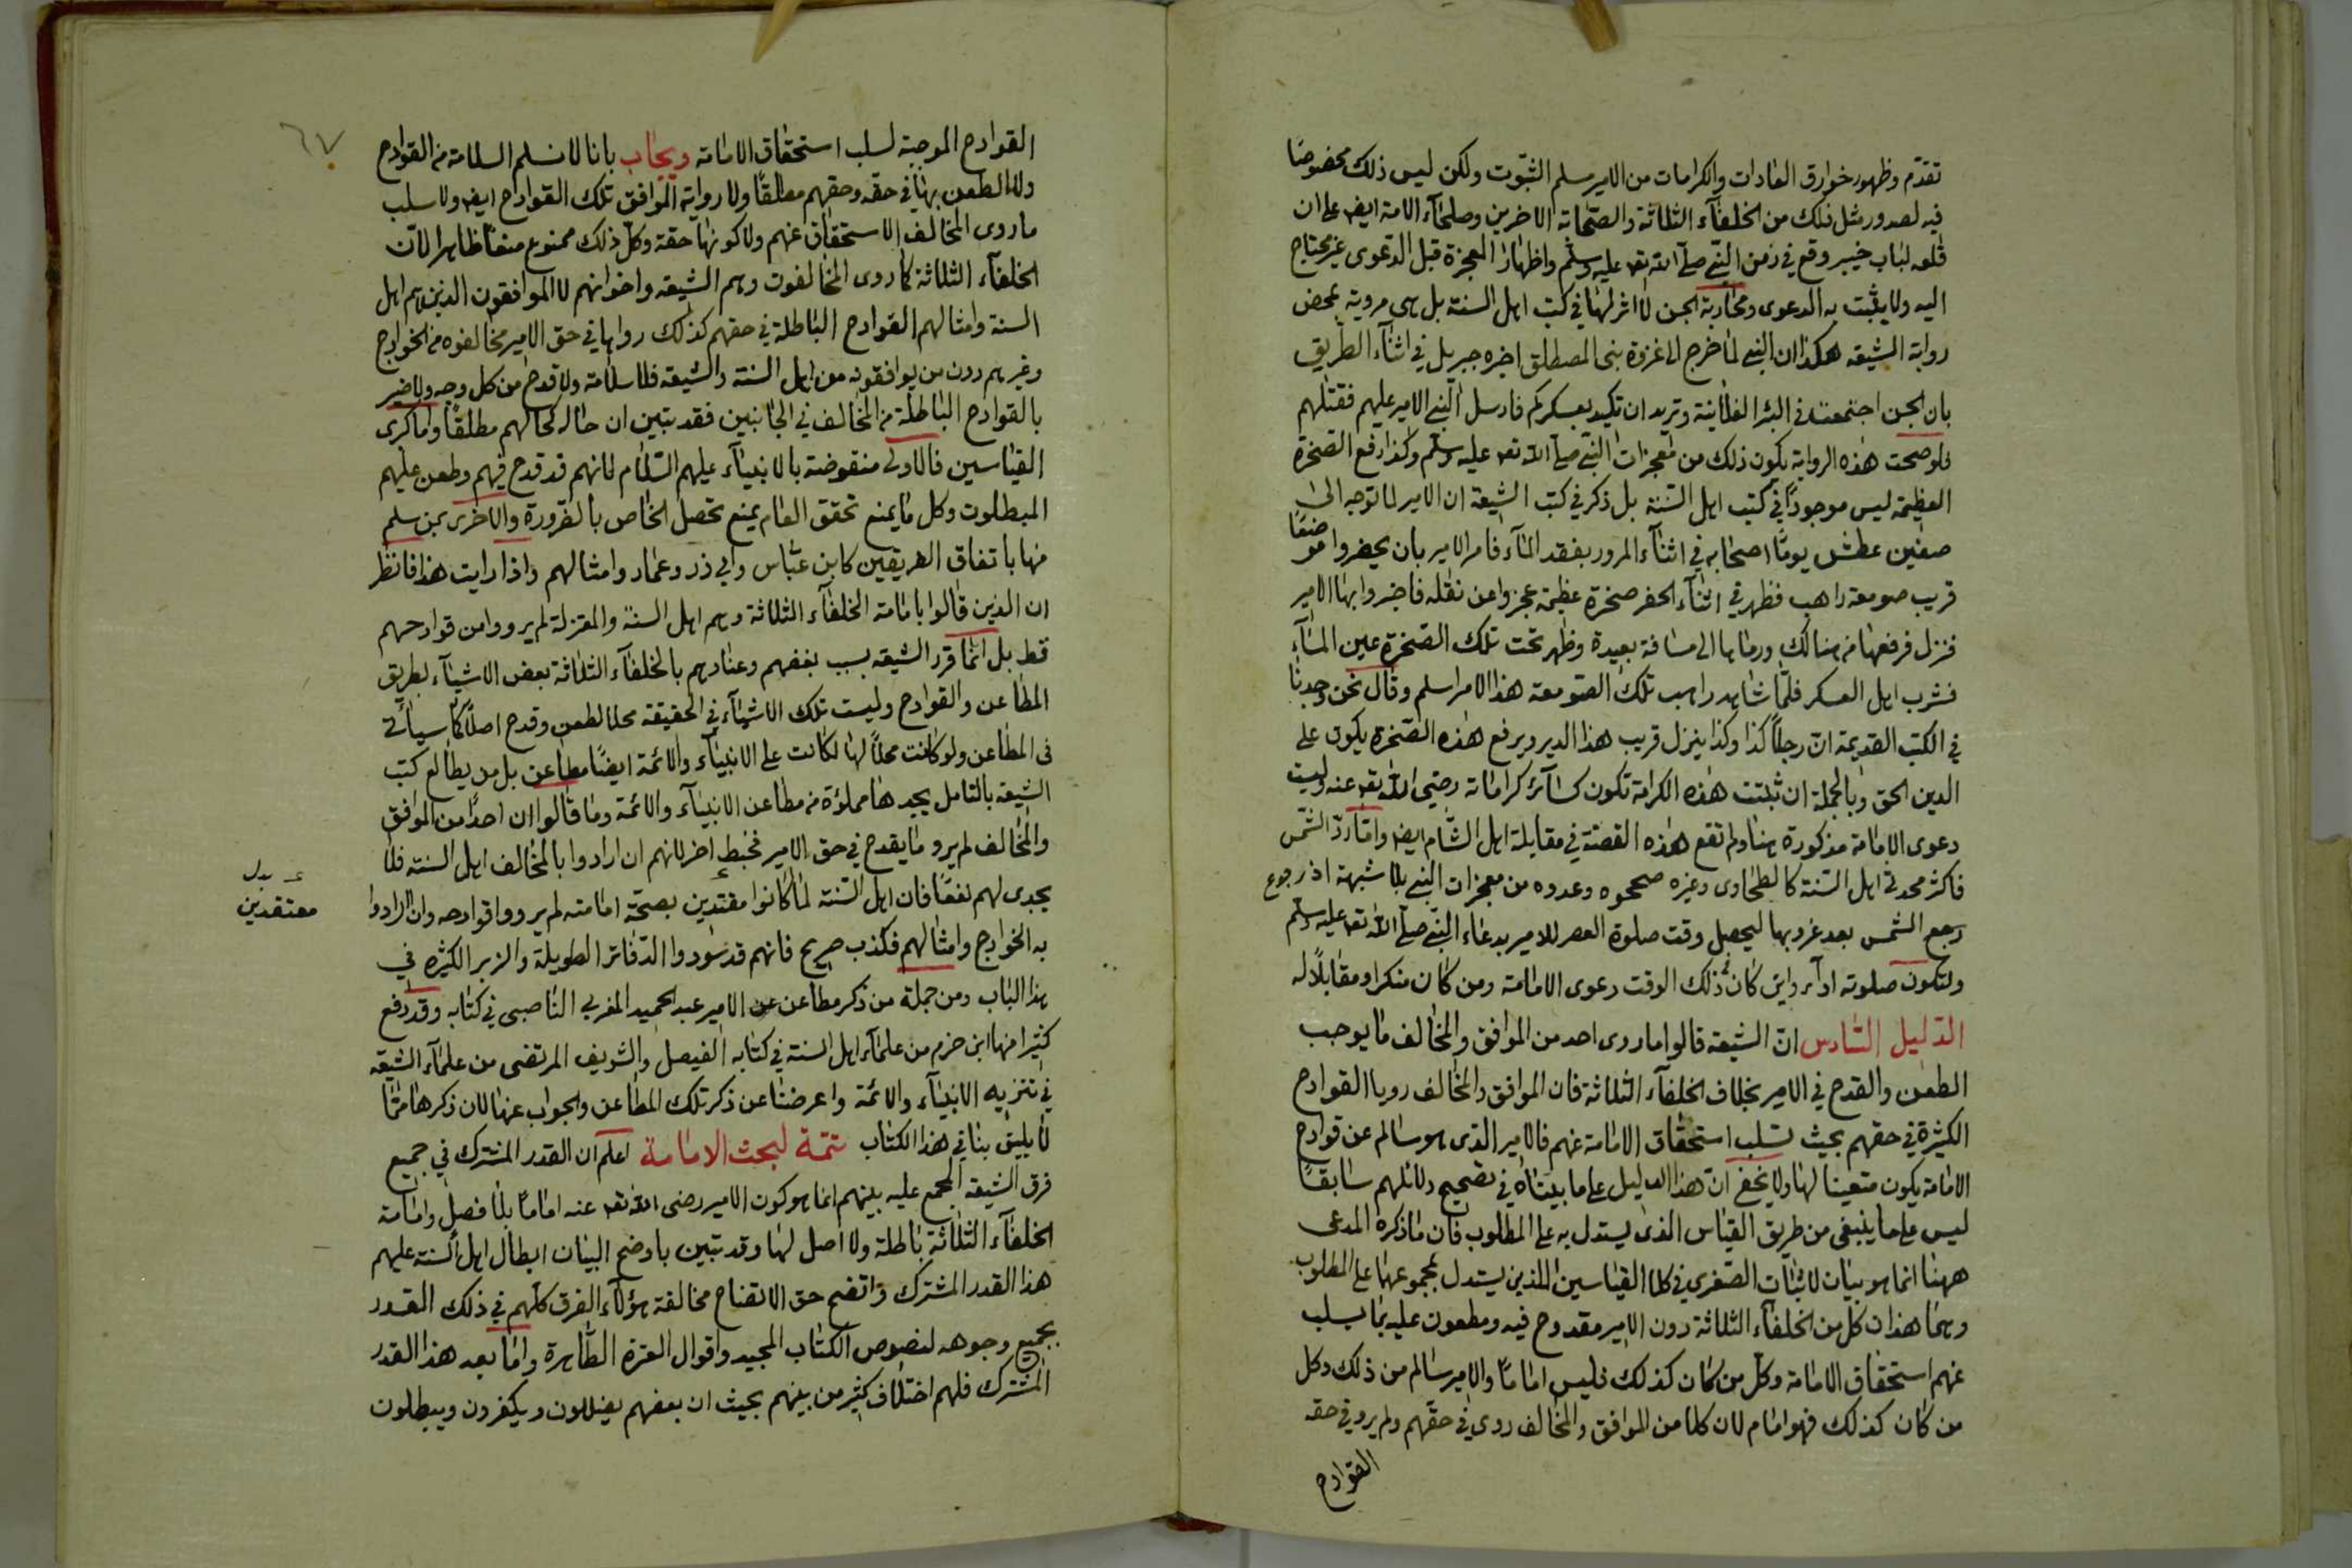 تقدّم وظهور خوارق العادات والكرامات من الامير مسلم الثبوت ولكن ليس ذلك مخصوصًا
فيه لصدور مثل ذلك من الخلفآء الثلاثة والصّحابة الاخرين وصلحآء الامة ايض على ان
قلعه لباب خيبر وقع في زمن النّبي صلّى الله تعه عليه وسلّم واظهار المعجزة قبل الدّعوى غير محتاج
اليه ولا يثبت به الدعوى ومحاربة الجن لا اثر لها في كتب اهل السنة بل هى مروية بمحض
رواية الشيعة هكذا ان النبي لما خرج الى غزوة بنى المصطلق اخبره جبريل في اثنآء الطّريق
بان الجن اجتمعت في البئر الفلانية وتريد ان تكيد بعسكركم فارسل النّبي الامير عليهم فقتلهم
فلو صحت هذه الرواية يكون ذلك من معجزات النّبي صلّى الله تعه عليه وسلّم وكذا رفع الصّخرة
العظيمة ليس موجودًا في كتب اهل السّنة بل ذكر في كتب الشيعة ان الامير لما توجه الى
صفين عطش يومًا اصحابه في اثنآء المرور بفقد المآء فامر الامير بان يحفروا موضعًا
قريب صومعة راهب فظهر في اثنآء الحفر صخرة عظيمة عجزوا عن نقله فاخبروا بها الامير
فنزل فرفعها من هنالك ورماها الى مسافة بعيدة وظهر تحت تلك الصّخرة عين المآء
فشرب اهل العسكر فلمّا شاهد راهب تلك الصّومعة هذا الامر اسلم وقال نحن وجدنا
في الكتب القديمة انّ رجلاً كذا وكذا ينزل قريب هذا الدير ويرفع هذه الصّخرة يكون على
الدين الحق وبالجملة ان ثبتت هذه الكرامة تكون كسآئر كراماته رضي الله تعه عنه وليست
دعوى الامامة مذكورة هنا ولم تقع هذه القصّة في مقابلة اهل الشّام ايض وامّا ردّ الشّمس
فاكثر محدثي اهل السّنة كالطحاوى وغيره صححوه وعدوه من معجزات النبي بلا شبهة اذ رجوع
رجع الشّمس بعد غروبها ليحصل وقت صلوة العصر للامير بدعاء النّبي صلّى الله تعه عليه وسلّم
ولتكون صلوته ادآء واين كان ذلك الوقت دعوى الامامة ومن كان منكرا ومقابلًا له
الدّليل السّادس انّ الشيعة قالوا ما روى احد من الموافق والمخالف ما يوجب
الطعن والقدح في الامير بخلاف الخلفآء الثلاثة فان الموافق والمخالف رويا القوادح
الكثيرة في حقهم بحيث تسلب استحقاق الامامة عنهم فالامير الذى هو سالم عن قوادح
الامامة يكون متعينا لها ولا يخفى انّ هذا الدليل على ما بيّناه في تصحيح دلائلهم سابقًا
ليس على ما ينبغى من طريق القياس الذى يستدل به على المطلوب فان ما ذكره المدعى
ههنا انما هو بيان لاثبات الصّغرى في كلا القياسين اللذين يستدل بمجموعها على المطلوب
وهما هذان كل من الخلفآء الثلاثة دون الامير مقدوح فيه ومطعون عليه بما يسلب
عنهم استحقاق الامامة وكل من كان كذلك فليس امامًا والامير سالم من ذلك وكل
من كان كذلك فهو امام لان كلا من الموافق والمخالف روى في حقّهم ولم يرو في حقه
القوادح
٦٧
القوادح الموجبة لسلب استحقاق الامامة ويجاب بانا لا نسلم السلامة من القوادح
ولا الطعن بها في حقه وحقهم مطلقًا ولا رواية الموافق تلك القوادح ايض ولا سلب
ما روى المخالف الاستحقاق عنهم ولا كونها حقة وكل ذلك ممنوع منعًا ظاهرا لانّ
الخلفآء الثلاثة كما روى المخالفون وهم الشيعة واخوانهم لا الموافقون الذين هم اهل
السنة وامثالهم القوادح الباطلة في حقهم كذلك رواها في حق الامير مخالفوه من الخوارج
وغيرهم دون من يوافقونه من اهل السنة والشيعة فلا سلامة ولا قدح من كل وجه ولا ضير
بالقوادح الباطلة من المخالف في الجانبين فقد تبين ان حاله كحالهم مطلقًا واما كبرى
القياسين فالاولى منقوضة بالانبيآء عليهم السّلام لانهم قد قدح فيهم وطعن عليهم
المبطلون وكل ما يمنع تحقق العام يمنع تحصل الخاص بالضرورة والاخرى بمن سلم
منها باتفاق الفريقين كابن عبّاس وابي ذر وعمار وامثالهم واذا رايت هذا فانظر
ان الذين قالوا بامامة الخلفآء الثلاثة وهم اهل السنة والمعتزلة لم يرووا من قوادحهم
قط بل انّما قرر الشيعة بسبب بغضهم وعنادهم بالخلفآء الثلاثة بعض الاشيآء بطريق
المطاعن والقوادح وليست تلك الاشيآء في الحقيقة محلا لطعن وقدح اصلًا كما سيأتي
فى المطاعن ولو كانت محلًّا لها لكانت على الانبيآء والائمة ايضًا مطاعن بل من يطالع كتب
الشيعة بالتامل يجدها مملؤة من مطاعن الانبيآء والائمة وما قالوا ان احدًا من الموافق
والمخالف لم يرو ما يقدح في حق الامير فخبط اخر لانهم ان ارادوا بالمخالف اهل السنة فلا
يجدى لهم نفعًا فان اهل السّنة لما كانوا مقتدين بصحّة امامته لم يرووا قوادحه وان ارادوا
به الخوارج وامثالهم فكذب صريح فانهم قد سودوا الدّفاتر الطويلة والزبر الكثيرة في
هذا الباب ومن جملة من ذكر مطاعن الامير عبد الحميد المغربي الناصبى في كتابه وقد رفع
كثيرا منها ابن حزم من علمآء اهل السنة في كتابه الفيصل والشريف المرتضى من علمآء الشيعة
في تنزيه الانبيآء والائمة واعرضنا عن ذكر تلك المطاعن والجواب عنها لان ذكرها ممّا
لا يليق بنا في هذا الكتاب تتمة لبحث الامامة اعلم ان القدر المشترك في جميع
فرق الشيعة المجمع عليه بينهم انما هو كون الامير رضى الله تعه عنه امامًا بلا فصل وامامة
الخلفآء الثلاثة باطلة ولا اصل لها وقد تبين باوضح البيان ابطال اهل السنة عليهم
هذا القدر المشترك واتضح حق الاتضاح مخالفة هؤلآء الفرق كلهم في ذلك القدر
بجميع وجوهه لنصوص الكتاب المجيد واقوال العترة الطّاهرة واما بعد هذا القدر
المشترك فلهم اختلاف كثير من بينهم بحيث ان بعضهم يضللون ويكفرون ويبطلون
بدل
معتقدين